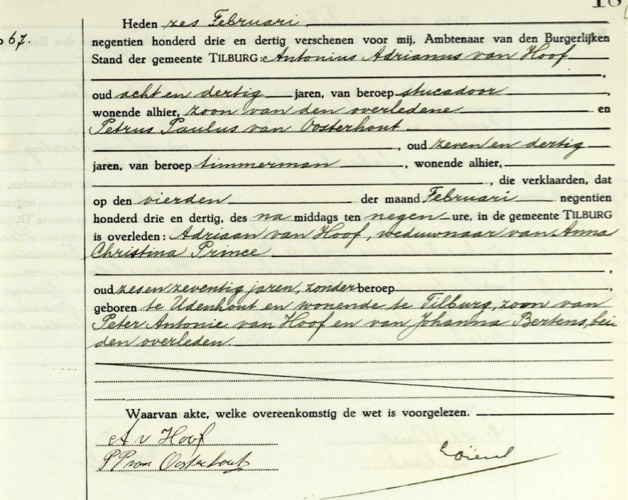 Heden zes Februari
67.
negentien honderd drie en dertig verschenen voor mij, Ambtenaar van den Burgerlijken
Stand der gemeente TILBURG: Antonius Adrianus van Hoof
oud acht en dertig jaren, van beroep stucadoor,
wonende alhier, zoon van den overledene en
Petrus Paulus van Oosterhout
, oud zeven en dertig
jaren, van beroep timmerman, wonende alhier,
, die verklaarden, dat
op den vierden der maand Februari negentien
honderd drie en dertig, des na middags ten negen ure, in de gemeente TILBURG
is overleden: Adriaan van Hoof, weduwnaar van Anna
Christina Prince
oud zes en zeventig jaren, zonder beroep
geboren te Udenhout en wonende te Tilburg, zoon van
Peter Antonie van Hoof en van Johanna Bertens, bei
den overleden
Waarvan akte, welke overeenkomstig de wet is voorgelezen.
A v Hoof
P P van Oosterhout